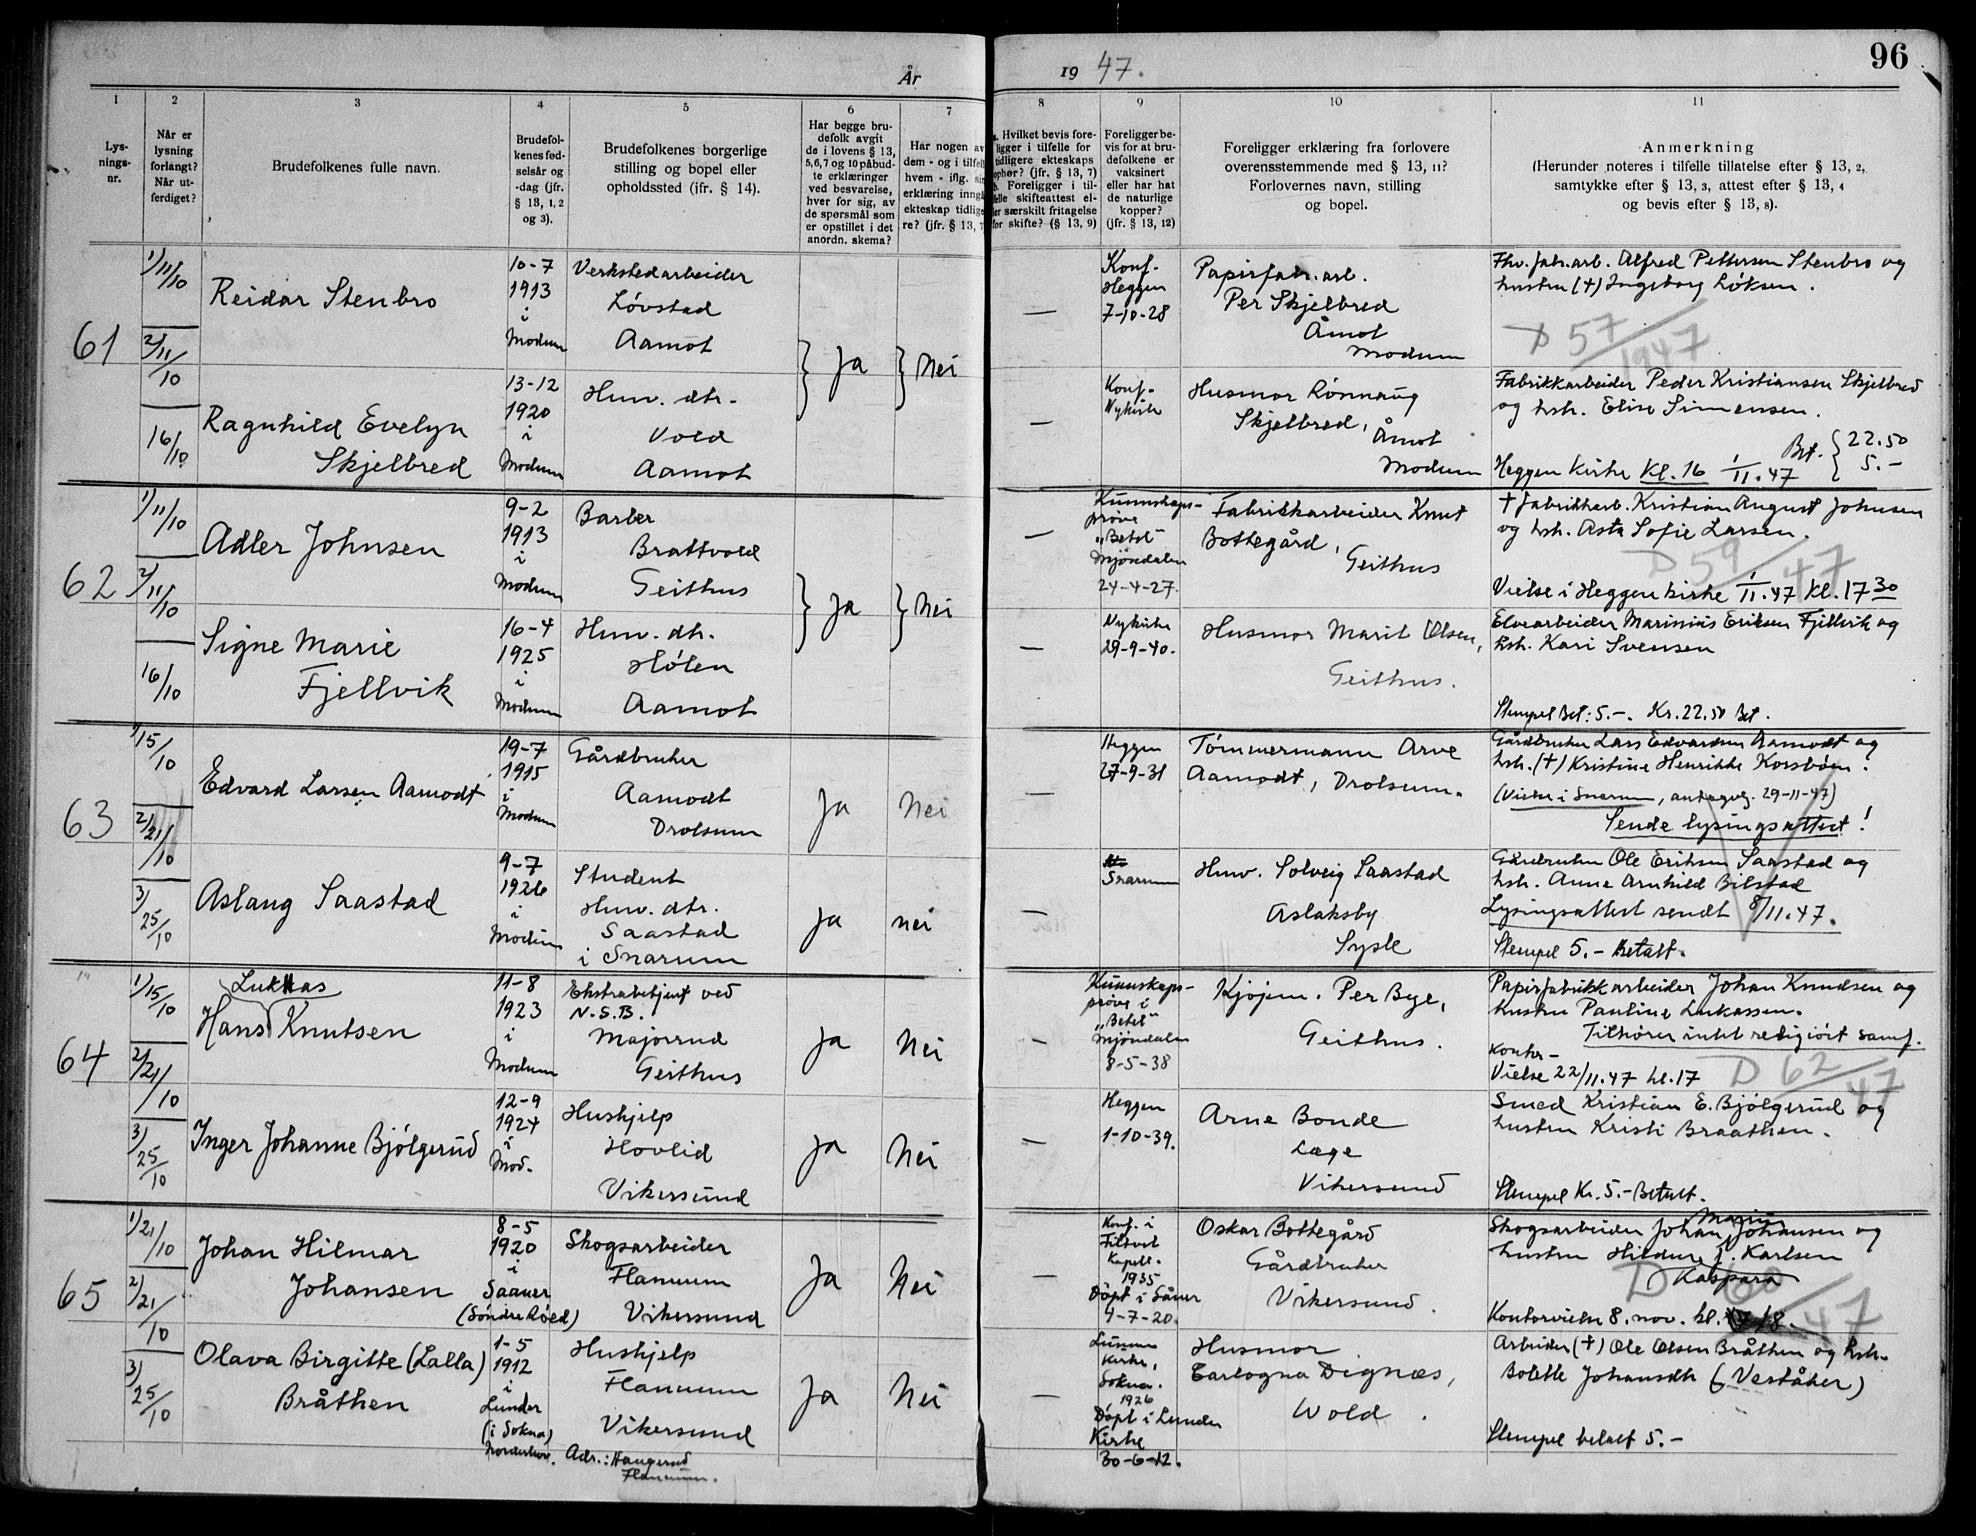 96
År
19 47.
1
2
3
4
5
6
7
8
9
10
11
Lys-
nings-
nr.
Når er
lysning
forlangt?
Når ut-
ferdiget?
Brudefolkenes fulle navn.
Brudefol-
kenes fød-
selsår og
-dag (jfr.
§ 13, 1, 2
og 3).
Brudefolkenes borgerlige
stilling og bopel eller
opholdssted (jfr. § 14).
Har begge bru-
defolk avgit
de i lovens § 13,
5,6,7 og 10 påbud-
te erklæringer
ved besvarelse,
hver for sig, av
de spørsmål som
er opstillet i det
anordn. skema?
Har nogen av
dem - og i tilfelle
hvem - iflg. sin
erklæring inngå
ekteskap tidlige
re? (jfr. § 13, 7
a. Hvilket bevis fore-
ligger i tilfelle for
tidligere ekteskaps
ophør? (jfr. § 13, 7)
b. Foreligger i til-
felle skifteattest el-
ler særskilt fritagelse
for skifte? (§ 13, 9)
Foreligger be-
vis for at bru-
defolkene er
vaksinert
eller har hat
de naturlige
kopper?
(jfr. § 13, 12)
Foreligger erklæring fra forlovere
overensstemmende med § 13, 11?
Forlovernes navn, stilling
og bopel.
Anmerkning
(Herunder noteres i tilfelle tillatelse efter § 13, 2,
samtykke efter § 13, 3, attest efter § 13, 4
og bevis efter § 13, 8).
61
1/11/10
2/11/10
16/10
Reidar Stenbro
10-7
1913
i
Modum
Verkstedarbeider
Lövstad
Aamot
Ja
Nei
—
Konf.
Heggen
7-10-28
Papirfabr.arb.
Per Skjelbred
Åmot
Modum
Fhv. fabr.arb. Alfred Pettersen Stenbro og
hustru (+) Ingeborg Løksen.
D 57/1947
Ragnhild Evelyn
Skjelbred
13-12
1920
i
Modum
Huv. dtr.
Vold
Aamot
—
Konf.
Nykirke
Husmor Rönnaug
Skjelbred,
Åmot
Modum
Fabrikkarbeider Peder Kristiansen Skjelbred
og hsh. Elise Simensen.
Bet. { 22.50
5.-
Heggen kirke kl. 16 1/11.47
62
1/11/10
2/11/10
16/10
Adler Johnsen
9-2
1913
i
Modum
Barber
Brattvold
Geithus
Ja
Nei
—
Kunnskaps-
prøve
"Betel"
Mjöndalen
24-4-27.
Fabrikkarbeider Knut
Bottegård,
Geithus
+ fabrikkarb. Kristian August Johnsen
og hsh. Asta Sofie Larsen.
D 59/47
Vielse i Heggen kirke 1/11.47 kl. 17 30
Signe Marie
Fjellvik
16-4
1925
i
Modum
Huv. dtr.
Hölen
Aamot
—
Nykirke
29-9-40.
Husmor Marit Olsen,
Geithus.
Elvearbeider Marinius Eriksen Fjellvik og
hsh. Kari Svensen
Stempel Bet: 5.-. Kr. 22.50 Bet.
63
1/15/10
2/21/10
3/25/10
Edvard Larsen Aamodt
19-7
1915
i
Modum
Gårdbruker
Aamodt
Drolsum
Ja
Nei
—
Heggen
27-9-31
Tömmermann Arve
Aamodt, Drolsum.
Gårdbruker Lars Edvardsen Aamodt og
hsh. (+) Kristine Henrikke Korsbøen.
(Vielse i Snarum, antagelig. 29-11-47)
Sende lysingsattest!
Aslaug Saastad
9-7
1926
i
Modum
Student
Huv. dtr.
Saastad
i Snarum
Ja
nei
—
Snarum
Huv. Solveig Saastad
Aslaksby
Sysle
Gårdbruker Ole Eriksen Saastad og
hsh. Anne Arnhild Bilstad
Lysingsattest sendt 8/11.47.
Stempel 5.- Betalt.
64
1/15/10
2/21/10
3/25/10
Lukkas
Hans Knutsen
11-8
1923
i
Modum
Ekstrabetjent ved
N.S.B.
Majorrud
Geithus
Ja
Nei
—
Kunnskaps-
prøve i
"Betel"
Mjöndalen
8-5-38
Kjøpm. Per Bye,
Geithus.
Papirfabrikkarbeider Johan Knudsen og
hustru Pauline Lukassen.
Tilhører intet religiöst samf.
Kontor-
Vielse 22/11.47 kl. 17
D 62/47
Inger Johanne Bjölgerud
12-9
1924
i
Mod.
Hushjelp
Hovlid
Vikersund
Ja
Nei
—
Heggen
1-10-39.
Arne Bonde
Læge
Vikersund
Smed Kristian E. Bjölgerud og
hustru Kristi Braathen.
Stempel Kr. 5.- Betalt.
65
1/21/10
2/21/10
3/25/10
Johan Hilmar
Johansen
8-5
1920
i
Saaner
(Söndre Röed)
Skogsarbeider
Flannum
Vikersund
Ja
Nei
—
Konf. i
Filtvet
Kapell.
1935
Döpt i Såner
4-7-20.
Oskar Bottegård
Gårdbruker
Vikersund.
Marius
Skogsarbeider Johan Johansen og
hustru Hildur J. Karlsen
Kaspara
D 60/47
Kontorvielse 8. nov. kl. 18.
Olava Birgitte (Lalla)
Bråthen
1-5
1912
i
Lunder
(i Sokna)
Norderhov.
Hushjelp
Flannum
Vikersund
Adr.: Haugerud
Flannum.
Ja
Nei
—
Lunner
Kirke,
Sokna.
1926
Döpt i Lunder
Kirke
30-6-12.
Husmor
Tartogna Dignæs,
Wold.
Arbeider (+) Ole Olsen Bråthen og hsh.
Bolette Johansdtr (Veståker)
Stempel betalt 5.-